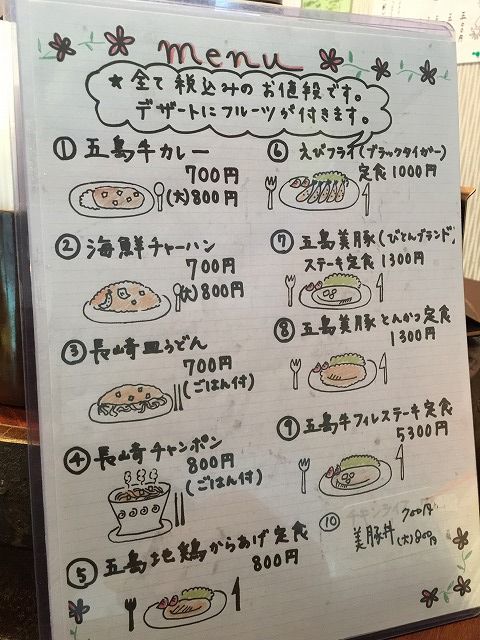 menu
★全て税込みのお値段です。
デザートにフルーツが付きます。
① 五島牛カレー
700円
(大)800円
② 海鮮チャーハン
700円
(大)800円
③ 長崎皿うどん
700円
(ごはん付)
④ 長崎チャンポン
800円
(ごはん付)
⑤ 五島地鶏からあげ定食
800円
⑥ えびフライ(ブラックタイガー)
定食1000円
⑦ 五島美豚(びとんブランド)
ステーキ定食1300円
⑧ 五島美豚とんかつ定食
1300円
⑨ 五島牛フィレステーキ定食
5300円
⑩ 美豚丼 700円
(大)800円